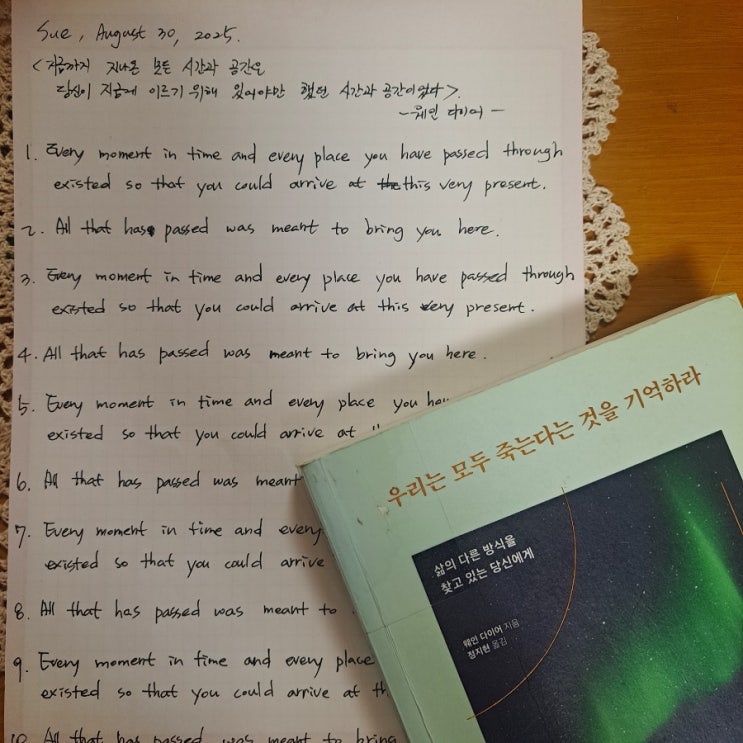 Sue, August 30, 2025.
<지금까지 지나온 모든 시간과 공간은
당신이 지금에 이르기 위해 있어야만 했던 시간과 공간이었다>.
- 웨인 다이어 -
1. Every moment in time and every place you have passed through
existed so that you could arrive at the this very present.
2. All that has passed was meant to bring you here.
3. Every moment in time and every place you have passed through
existed so that you could arrive at this very present.
4. All that has passed was meant to bring you here.
5. Every moment in time and every place you
existed so that you could arrive at
6. All that has passed was meant
7. Every moment in time and every
existed so that you could arrive
8. All that has passed was meant to
9. Every moment in time and every place
existed so that you could arrive at
10. All that has passed was meant to bring
우리는 모두 죽는다는 것을 기억하라
삶의 다른 방식을
찾고 있는 당신에게
웨인 다이어 지음
정지현 옮김